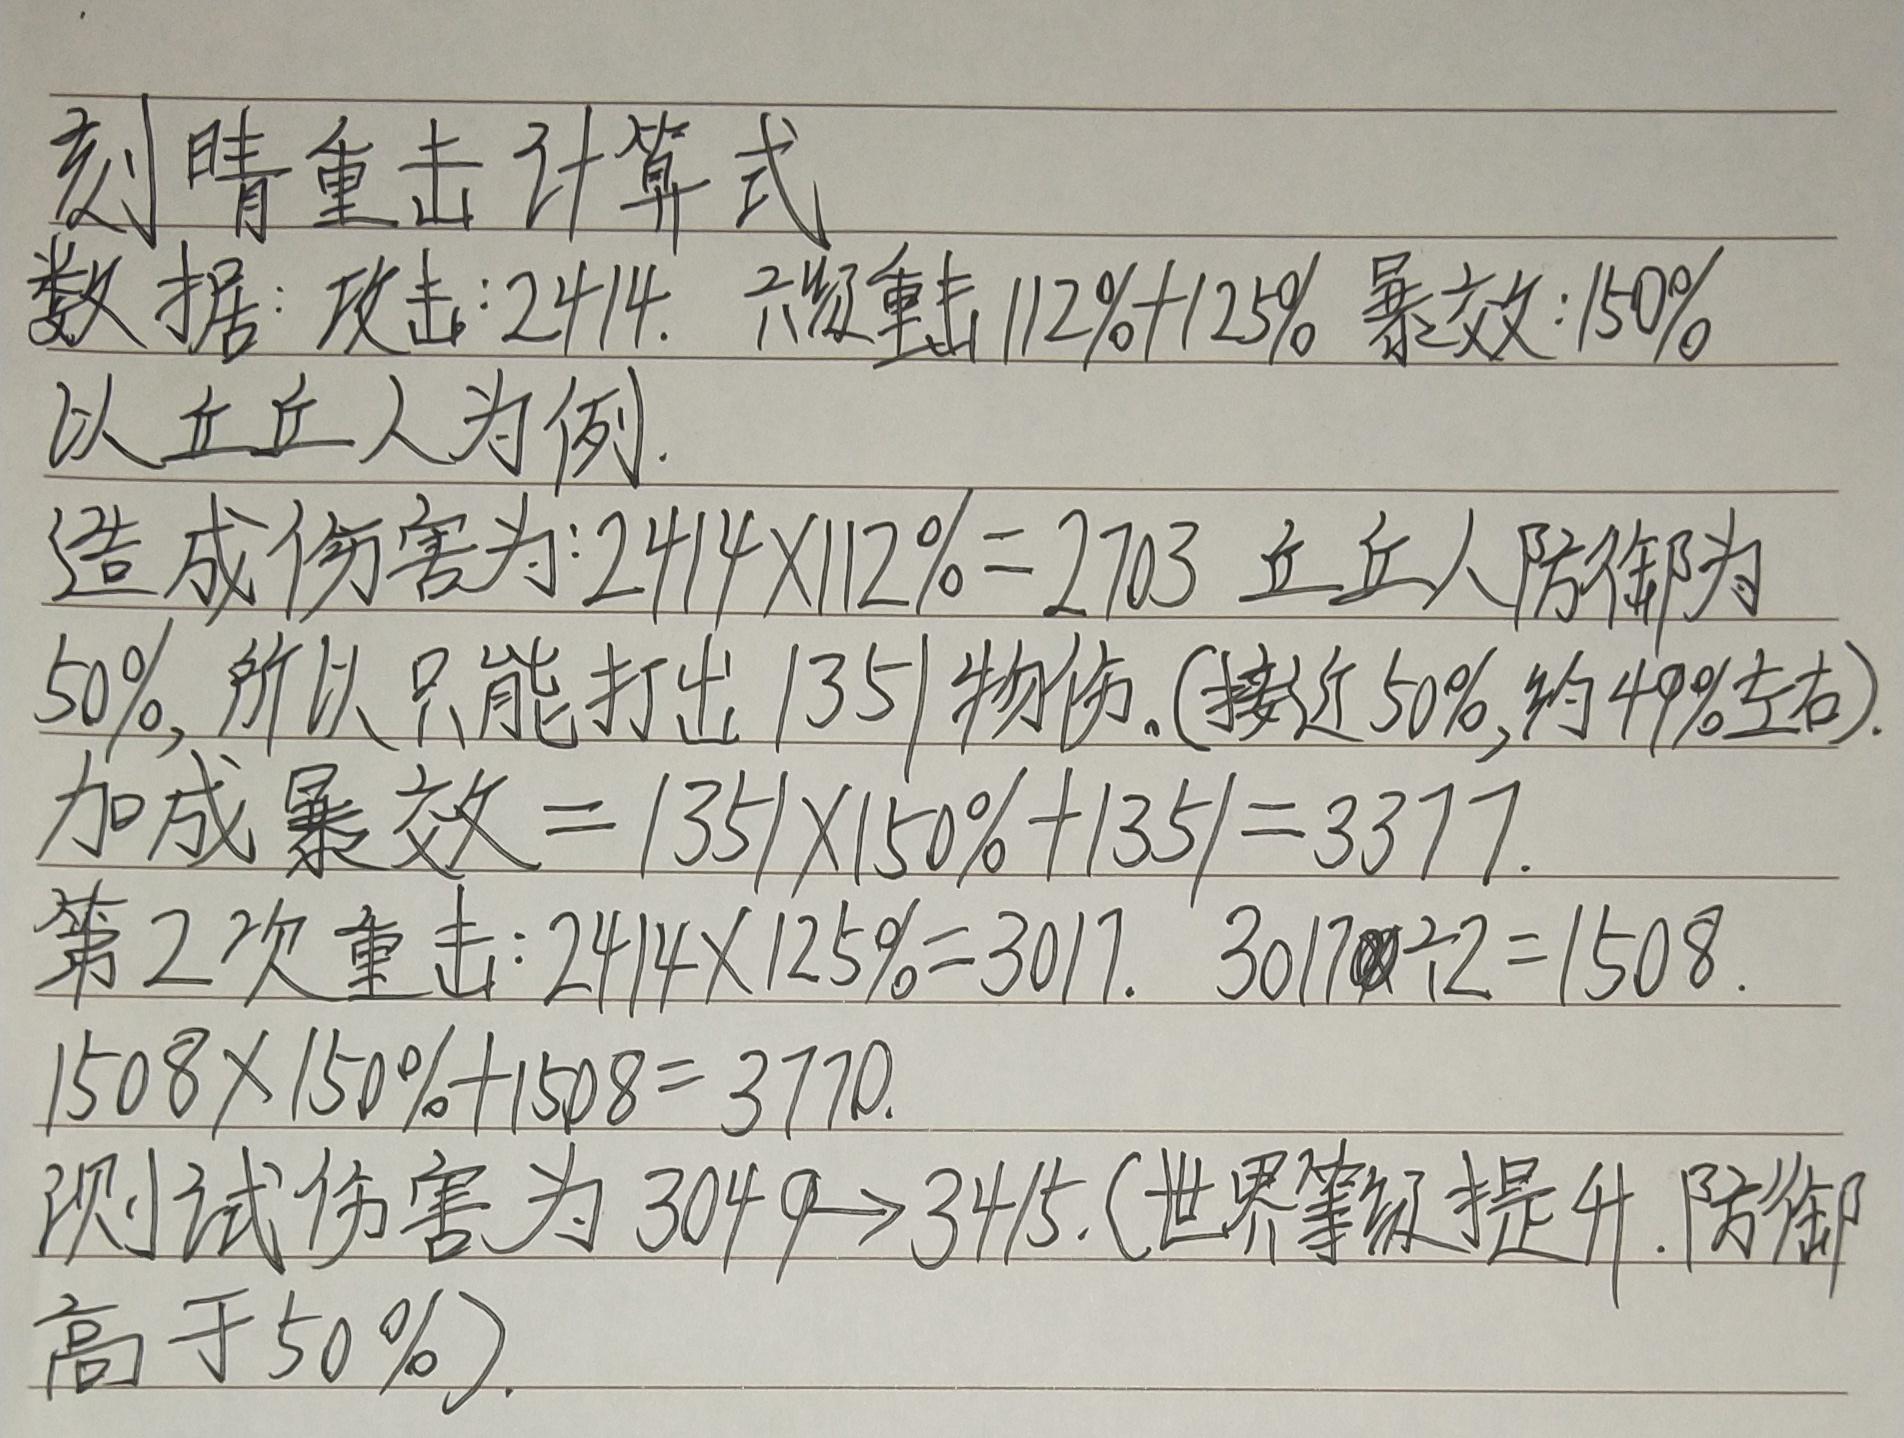 刻晴重击计算式
数据:攻击:2414. 六级重击112%+125% 暴效:150%
以丘丘人为例.
造成伤害为:2414×112%=2703 丘丘人防御为
50%,所以只能打出1351物伤。(接近50%,约49%左右).
加成暴效=1351×150%+1351=3377.
第2次重击:2414×125%=3017. 3017÷2=1508.
1508×150%+1508=3770.
测试伤害为3049→3415.(世界等级提升.防御
高于50%).